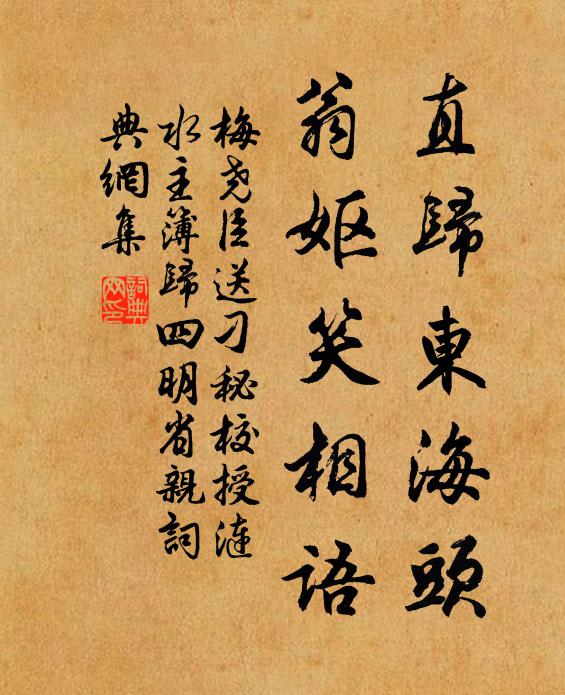 直歸東海頭
翁嫗笑相語
梅堯臣送刁秘校授漣
水主簿歸四明省親詞
典網集
詞典網印